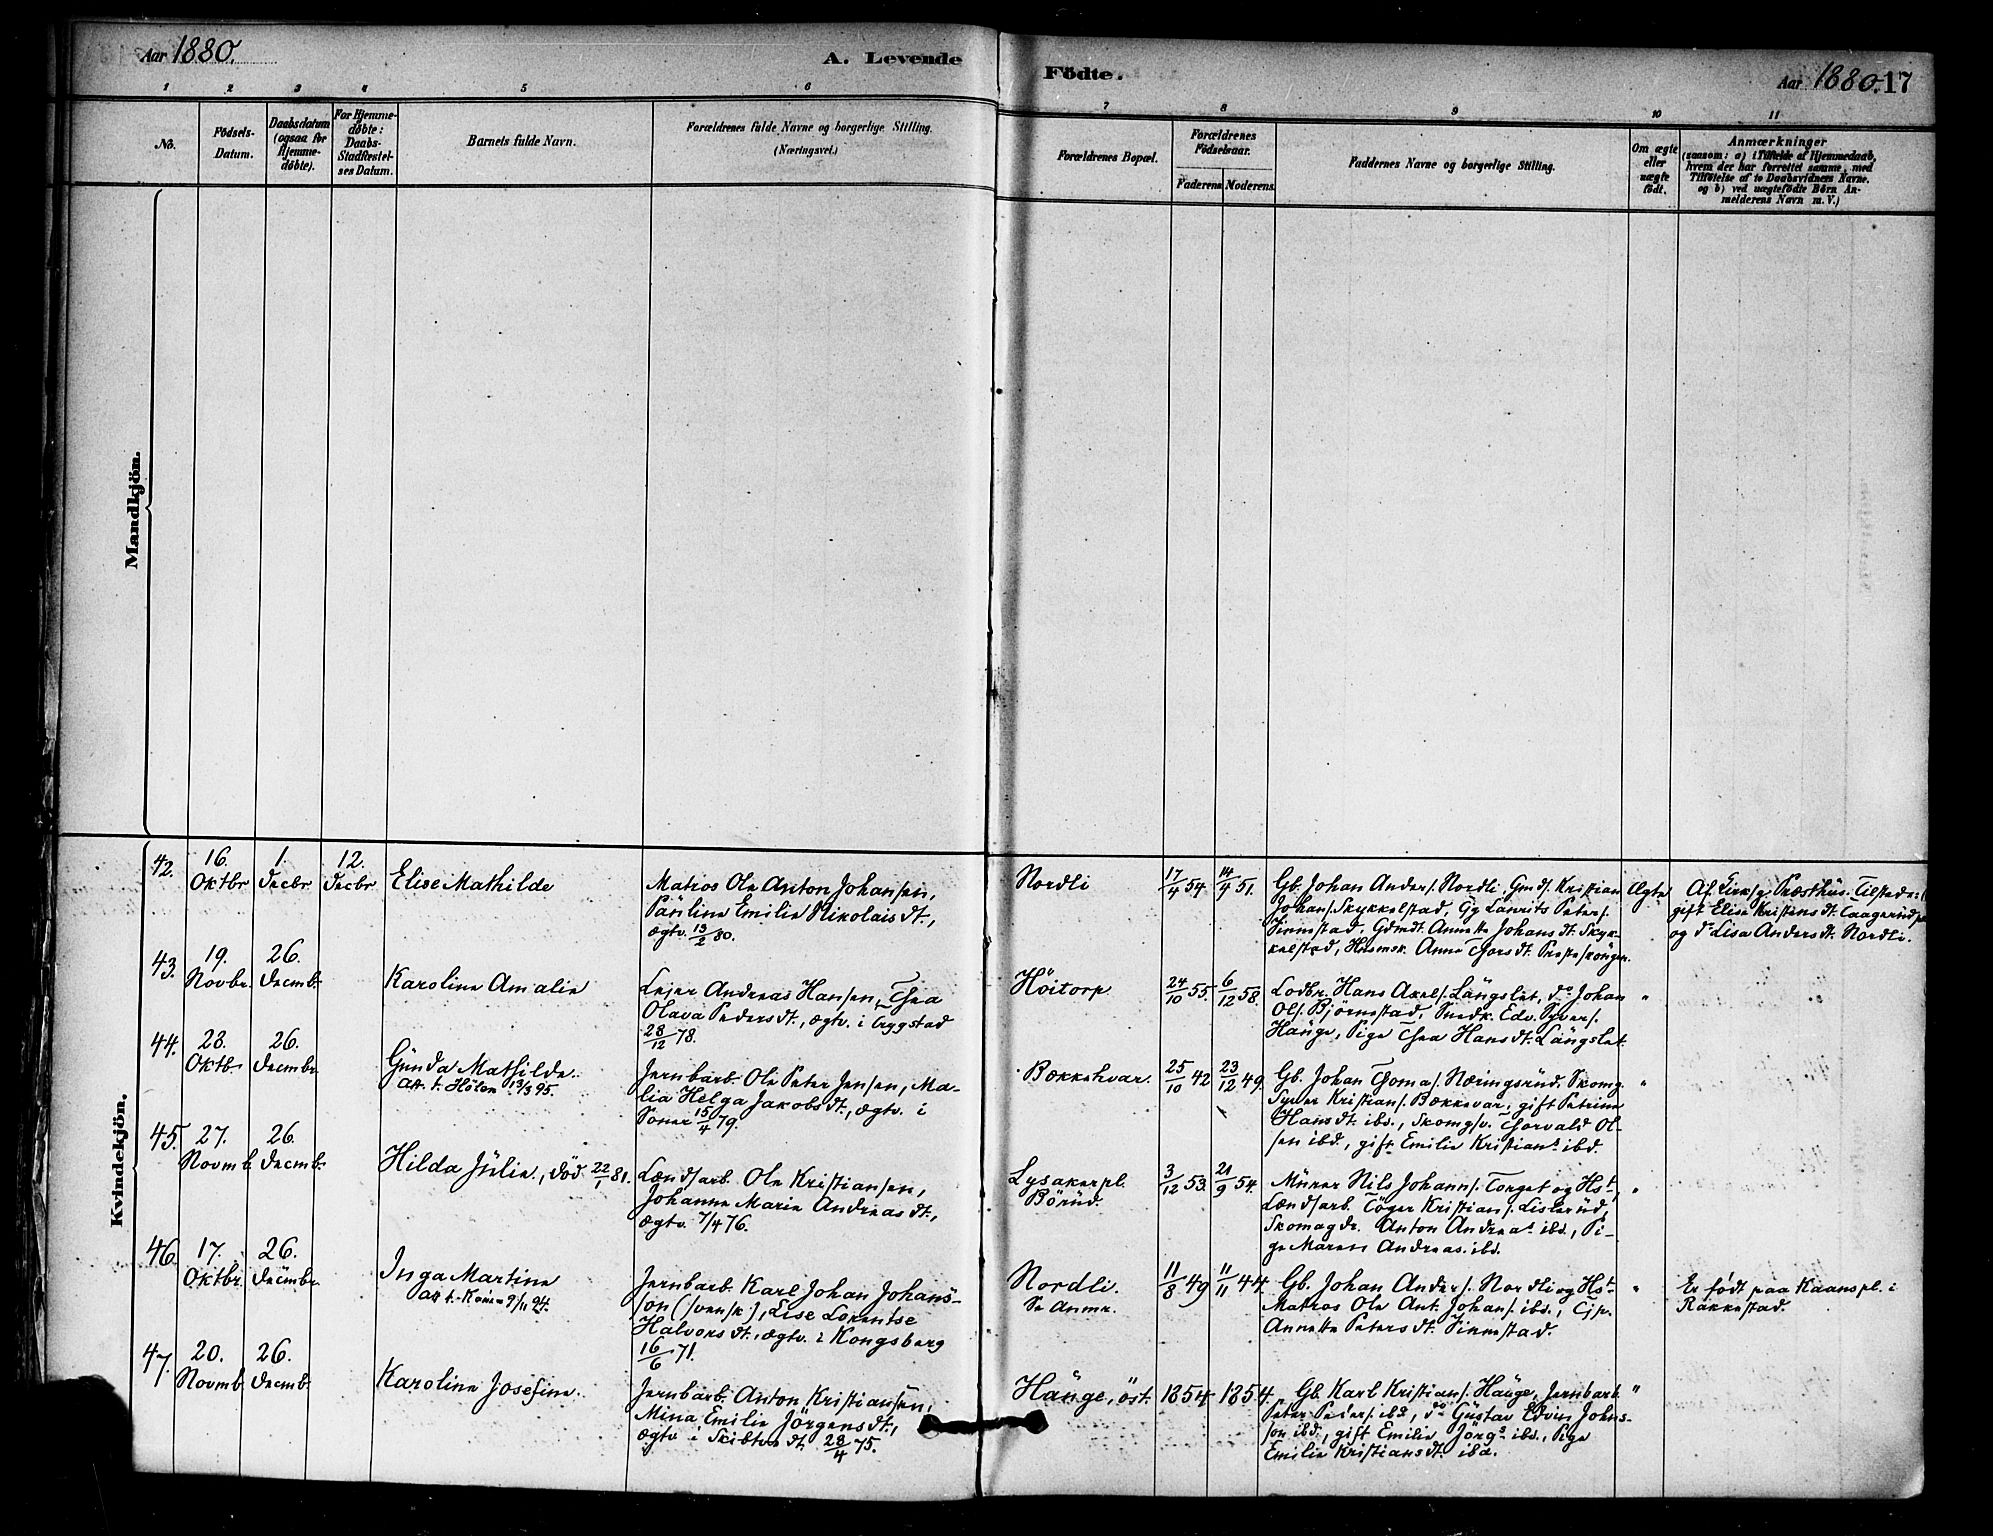 Aar 1880.
A. Levende
Födte.
Aar 1880. 17
1 2 3 4 5 6 7 8 9 10 11
No.
Födsels-
Datum.
Daabsdatum
(ogsaa for
Hjemme-
döbte).
For Hjemme-
döbte:
Daabs-
Stadfæstel-
ses Datum.
Barnets fulde Navn.
Forældrenes fulde Navne og borgerlige Stilling.
(Næringsvei.)
Forældrenes Bopæl.
Forældrenes
Födselsaar.
Faderens Moderens.
Faddernes Navne og borgerlige Stilling.
Om ægte
eller
uægte
födt.
Anmærkninger
(saasom: a) i Tilfælde af Hjemmedaab,
hvem der har forrettet samme, med
Tilföielse af to Daabsvidners Navne.
og b) ved uægtefödte Börn An-
melderens Navn m. V.)
Mandkjön.
Kvindekjön.
42.
16.
Oktbr
1.
Decbr
12.
Decbr
Elise Mathilde
Matros Ole Anton Johansen,
Pauline Emilie Nikolaisdt.,
ægtv. 13/2 80.
Nordli
17/4 54.
14/9 51.
Gb. Johan Anders. Nordli, Gmds. Kristian
Johans. Skykkelstad, Gg Laurits Peters.
Finnestad, Gdmdt. Annette Johansdt. Skyk-
kelstad, Husmsk. Anne Thorsdt.
Ægte
gift Elise Kristensdt.
og do Lisa Andersdt. Nordli.
43.
19.
Novbr.
26.
Decmb.
Karoline Amalie
Leier Andreas Hansen, Thea
Olava Pedersdt., ægtv. i Trygstad
28/12 78.
Höitorp
24/10 55.
6/12 58.
Lodbr. Hans Axels. Langslet, do Johan
Ols. Björnestad, Snedk. Edv. Syvers.
Hauge, Pige Thea Hansdt. Langslet
"
44.
28.
Oktb
26.
Decmbr
Gunda Mathilde.
Att. t. Hölen 13/3 95.
Jernbarb. Ole Peter Jensen, Ma-
lia Helga Jakobsdt., ægtv. i
Soner 15/4 79.
Bækkehvar.
25/10 42
23/12 49.
Gb. Johan Thomas. Næringsrud, Skomg.
Syver Kristians. Bækkevar, gift Petrine
Hansdt. ibd., Skomgsv. Thorvald Ol-
sen ibd., gift Emilie Kristians ibd.
"
45.
27.
Novmb.
26.
Decmb.
Hilda Julie., död 22/1 81.
Lændsarb. Ole Kristiansen,
Johanne Marie Andreasdt.,
ægtv. 7/4 76.
Lysakerpl.
Börud.
3/12 53.
21/9 54.
Murer Nils Johanns. Torget og Hst,
Lændsarb. Töger Kristians. Lislerud,
Skomagdr. Anton Andreas ibd., Pi-
ge Maren Andreas. ibd.
"
46.
17.
Oktbr.
26.
Decmbr.
Inga Martine
Att t. 9/11 94.
Jernbarb. Karl Johan Johans-
son (svensk), Lise Lorentse
Halvorsdt., ægtv. i Kongsberg
16/6 71.
Nordli.
Se Anmk.
11/8 49
11/11 44.
Gb. Johan Anders. Nordli og Hst
Matros Ole Ant. Johans. ibd., Gjp.
Annette Petersdt. Finnestad.
"
Er født paa Kaanspl. i
Rakkestad.
47.
20.
Novmb.
26.
Decmb.
Karoline Josefine.
Jernbarb. Anton Kristiansen,
Mina Emilie Jörgensdt.,
ægtv i Skibtvedt. 28/4 75.
Hauge, öst.
1854.
1854.
Gb. Karl Kristians. Hauge, Jernbarb.
Peter Peders. ibd, do Gustav Edvin Johns-
son ibd., gift Emilie Jörgs ibd., Pige
Emilie Kristiansdt. ibd.
"